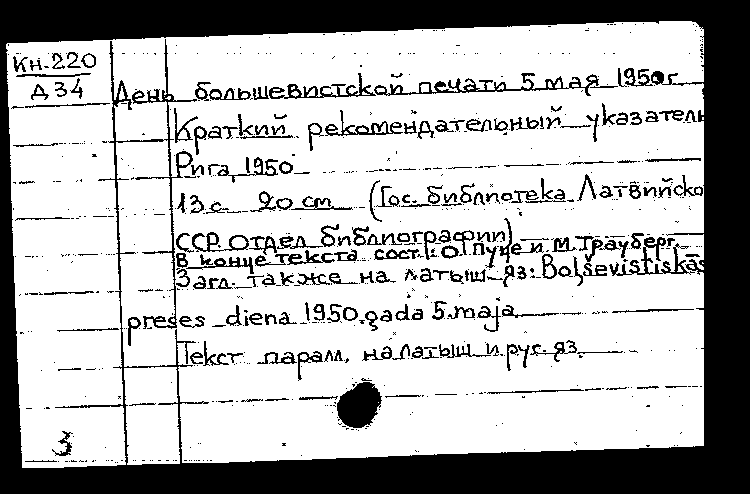 Кн-220
Д34
День большевистской печати 5 мая 1950 г.
Краткий рекомендательный указатель
Рига, 1950
13 с. 20 cm (Гос. библиотека Латвийско
ССР. Отдел библиографии)
В конце текста сост.: О. Пуце и М. Трауберг.
Загл. также на латыш. яз: Boļševistiskās
preses diena 1950. gada 5. maja
Текст парал. на латыш и рус. яз.
3